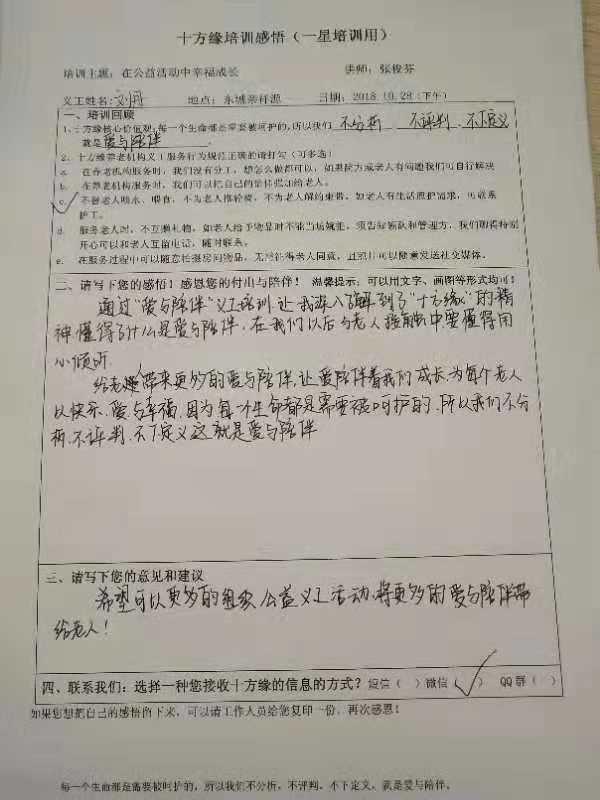 十方缘培训感悟（一星培训用）
培训主题：在公益活动中幸福成长 讲师：张俊芬
义工姓名：刘丹 地点：东城亲祥源 日期：2018.10.28（下午）
一、培训回顾
1.十方缘核心价值观：每一个生命都是需要被呵护的，所以我们 不分析 不评判 不下定义
就是 爱与陪伴
2. 十方缘养老机构义工服务行为规范正确的请打勾（可多选）
a. 在养老机构服务时，我们没有分工，想怎么做都可以，如果院方或老人有问题我们可自行解决
b. 在养老机构服务时，我们可以把自己的信仰强加给老人。
c. 不给老人喂水、喂食，不为老人推轮椅，不为老人解约束带，如老人有生活照护需求，可联系
护工。
d. 服务老人时，不互赠礼物，如老人给予物品时不能当场婉拒，须告知领队和管理方，我们聊得特别
开心可以和老人互留电话，随时联系。
e. 在服务过程中可以随意拍摄房间物品，无需征得老人同意，且照片可以随意发送社交媒体。
二、请写下您的感悟！感恩您的付出与陪伴！ 温馨提示：可以用文字、画图等形式均可！
通过“爱与陪伴”义工培训，让我深入了解到了“十方缘”的精
神懂得了什么是爱与陪伴，在我们以后与老人接触中要懂得用
心倾听.
给老人带来更多的爱与陪伴，让爱陪伴着我们成长，为每个老人
以快乐、爱与幸福，因为每一个生命都是需要被呵护的，所以我们不分
析、不评判、不下定义这就是爱与陪伴
三、请写下您的意见和建议
希望可以更多的组织公益义工活动，将更多的爱与陪伴带
给老人！
四、联系我们：选择一种您接收十方缘的信息的方式？短信（ ）微信（√） QQ群（ ）
如果您想把自己的感悟留下来，可以请工作人员给您复印一份，再次感恩！
每一个生命都是需要被呵护的，所以我们不分析，不评判，不下定义，就是爱与陪伴。